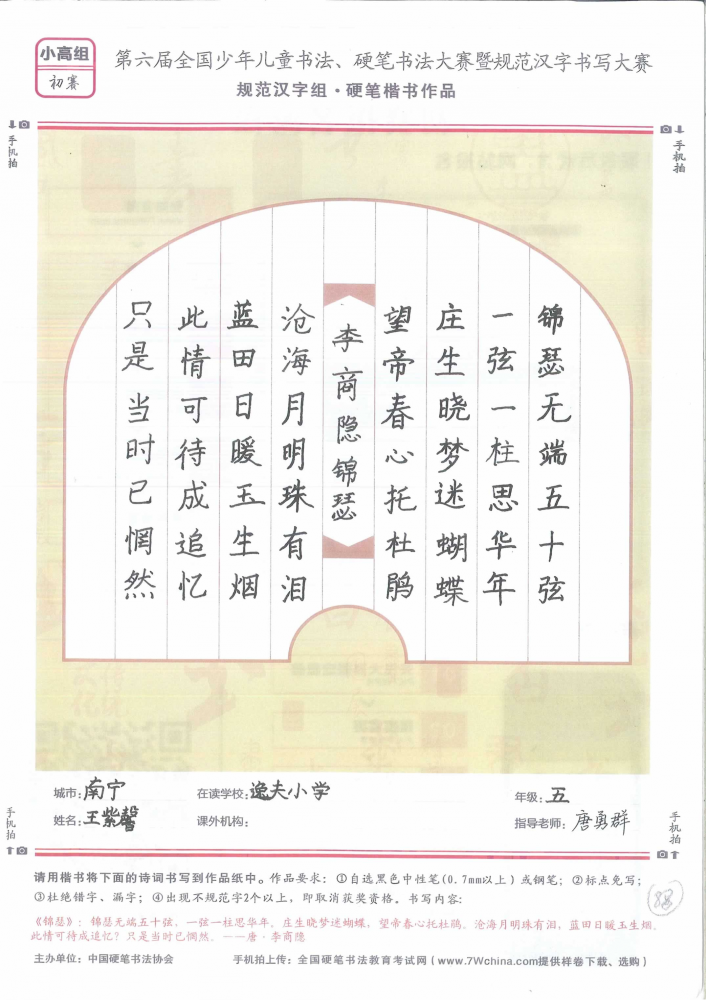 小高组
初赛
第六届全国少年儿童书法、硬笔书法大赛暨规范汉字书写大赛
规范汉字组·硬笔楷书作品
手机拍
手机拍
锦瑟无端五十弦
一弦一柱思华年
庄生晓梦迷蝴蝶
望帝春心托杜鹃
李商隐锦瑟
沧海月明珠有泪
蓝田日暖玉生烟
此情可待成追忆
只是当时已惘然
城市：南宁 在读学校：逸夫小学 年级：五
姓名：王紫馨 课外机构： 指导老师：唐勇群
手机拍
手机拍
请用楷书将下面的诗词书写到作品纸中。作品要求：①自选黑色中性笔(0.7mm以上)或钢笔；②标点免写；
③杜绝错字、漏字；④出现不规范字2个以上，即取消获奖资格。书写内容：
88
《锦瑟》：锦瑟无端五十弦，一弦一柱思华年。庄生晓梦迷蝴蝶，望帝春心托杜鹃。沧海月明珠有泪，蓝田日暖玉生烟。
此情可待成追忆？只是当时已惘然。——唐·李商隐
主办单位：中国硬笔书法协会 手机拍上传：全国硬笔书法教育考试网（www.7Wchina.com提供样卷下载、选购）